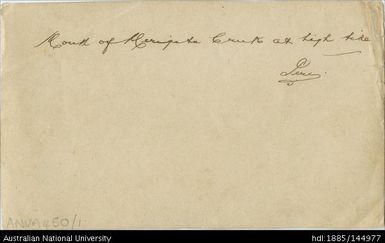 Mouth of Merigeta Creek at high tide
ANUA 50/1
Australian National University
hdl:1885/144977